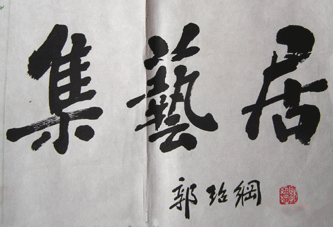 集藝居
郭詒綱